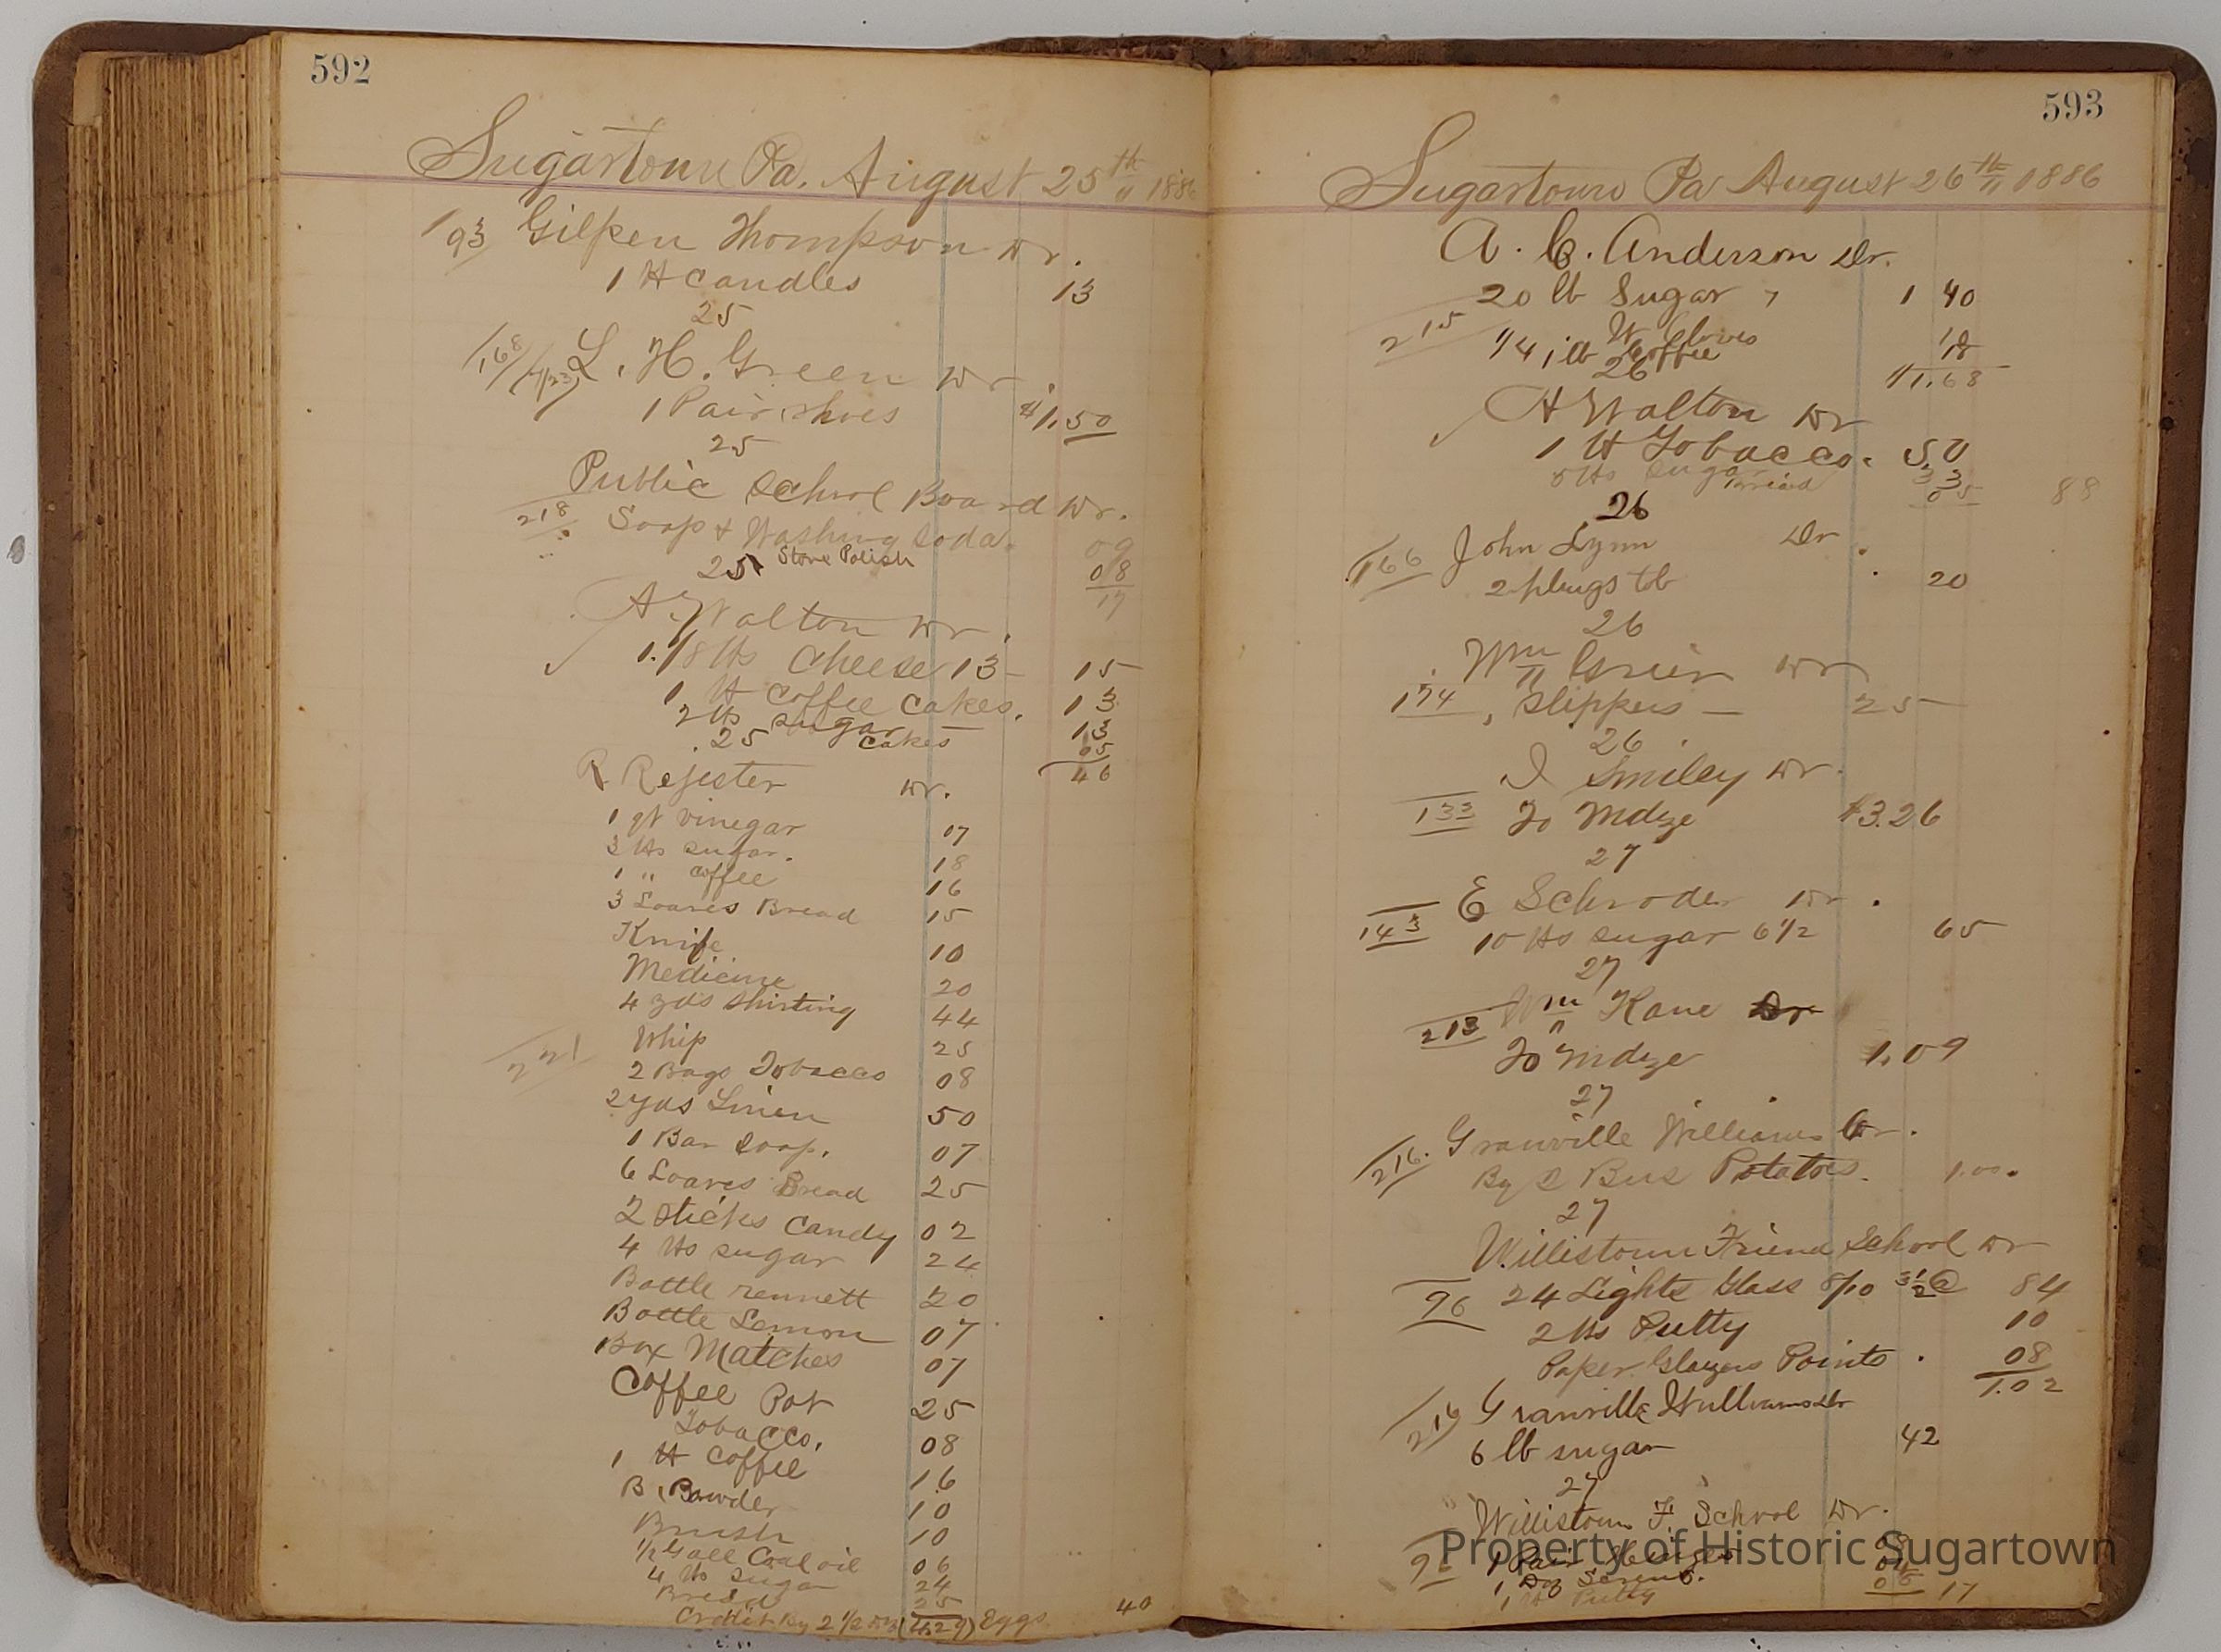 592
Sugartown Pa. August 25th 1886
193 Gilpen Thompson Dr.
1 lb Candles 13
25
168 L. H. Green Dr.
1 Pair Shoes $1.50
25
Public School Board Dr.
218 Soap & Washing Soda. 09
25 Stove Polish 08
17
A Walton Dr.
1.1/8 lbs Cheese 13 15
1 lb Coffee Cakes. 13
2 lbs Sugar 13
25 Cakes 05
46
R Regester Dr.
1 qt vinegar 07
3 lbs sugar. 18
1 " coffee 16
3 Loaves Bread 15
Knife 10
Medicine 20
4 yds Shirting 44
Whip 25
221 2 Bags Tobacco 08
2 yds Linen 50
1 Bar Soap. 07
6 Loaves Bread 25
2 Sticks Candy 02
4 lbs sugar 24
Bottle rennett 20
Bottle Lemon 07
Box Matches 07
Coffee Pot 25
Tobacco. 08
1 lb Coffee 16
B. Powder 10
Brush 10
1/2 Gall Coal oil 06
4 lb Sugar 24
Bread 25
Credit by 2 1/2 (4.29) Eggs 40
593
Sugartown Pa August 26th 1886
A. C. Anderson Dr.
20 lb Sugar 7 1 40
215 W Cloves 10
1/4 lb Coffee 18
26 $1.68
A Walton Dr
1 lb Tobacco. 50
5 lbs Sugar 33
Bread 05 88
26
166 John Lynn Dr.
2 plugs tb 20
26
Wm Grier Dr
174 Slippers — 25
26
I Smiley Dr.
133 To Mdze $3.26
27
143 E Schroder Dr.
10 lbs sugar 6 1/2 65
27
213 Wm Kane Dr
To Mdze 1.09
27
216. Granville Williams Cr.
By 2 Bus Potatoes. 1.00.
27
Willistown Friend School Dr
96 24 Lights Glass 8/10 3 1/2 @ 84
2 lbs Putty 10
Paper Glazers Points. 08
1.02
216 Granville Williams Dr
6 lb sugar 42
27
Willistown F. School Dr.
96 1 Pair Hinges
1 Doz Screws.
1 lb Putty 17
Property of Historic Sugartown